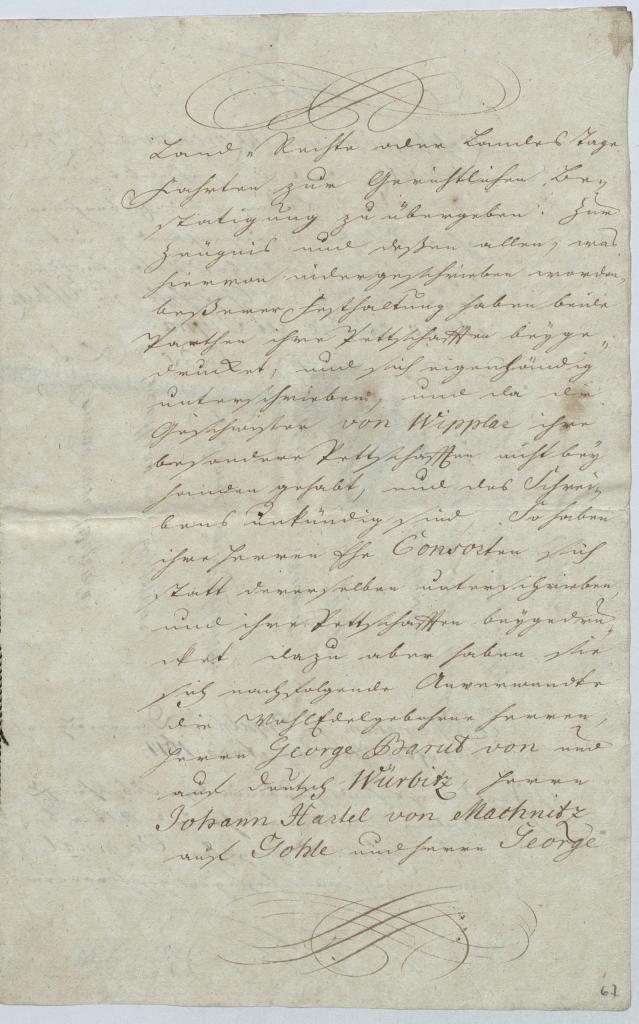 Land-Rechte oder Landes Tage
Fahrten zur Gerichtlichen Be-
statigung zu übergeben. Zur
Zeügnis und deßen allen, was
hiervon niedergeschrieben worden,
beßerer Festhaltung haben beide
Parthen ihre Pettschafften beyge-
drucket, und sich eigenhändig
unterschrieben, und da die
Geschwister von Wipplar ihre
besondere Pettschafften nicht bey
handen gehabt, und des Schrei-
bens unkündig sind, So haben
ihre Herren Ehe Consorten sich
statt dererselben unterschrieben,
und ihre Pettschafften beygedru-
cket, dazu aber haben sie
sich nachfolgende Anverwandte
die WohlEdelgebohrne Herren,
Herrn George Barut von und
auf deutsch Würbitz, Herrn
Johann Hartel von Machnitz
auf Gohle und Herrn George
67